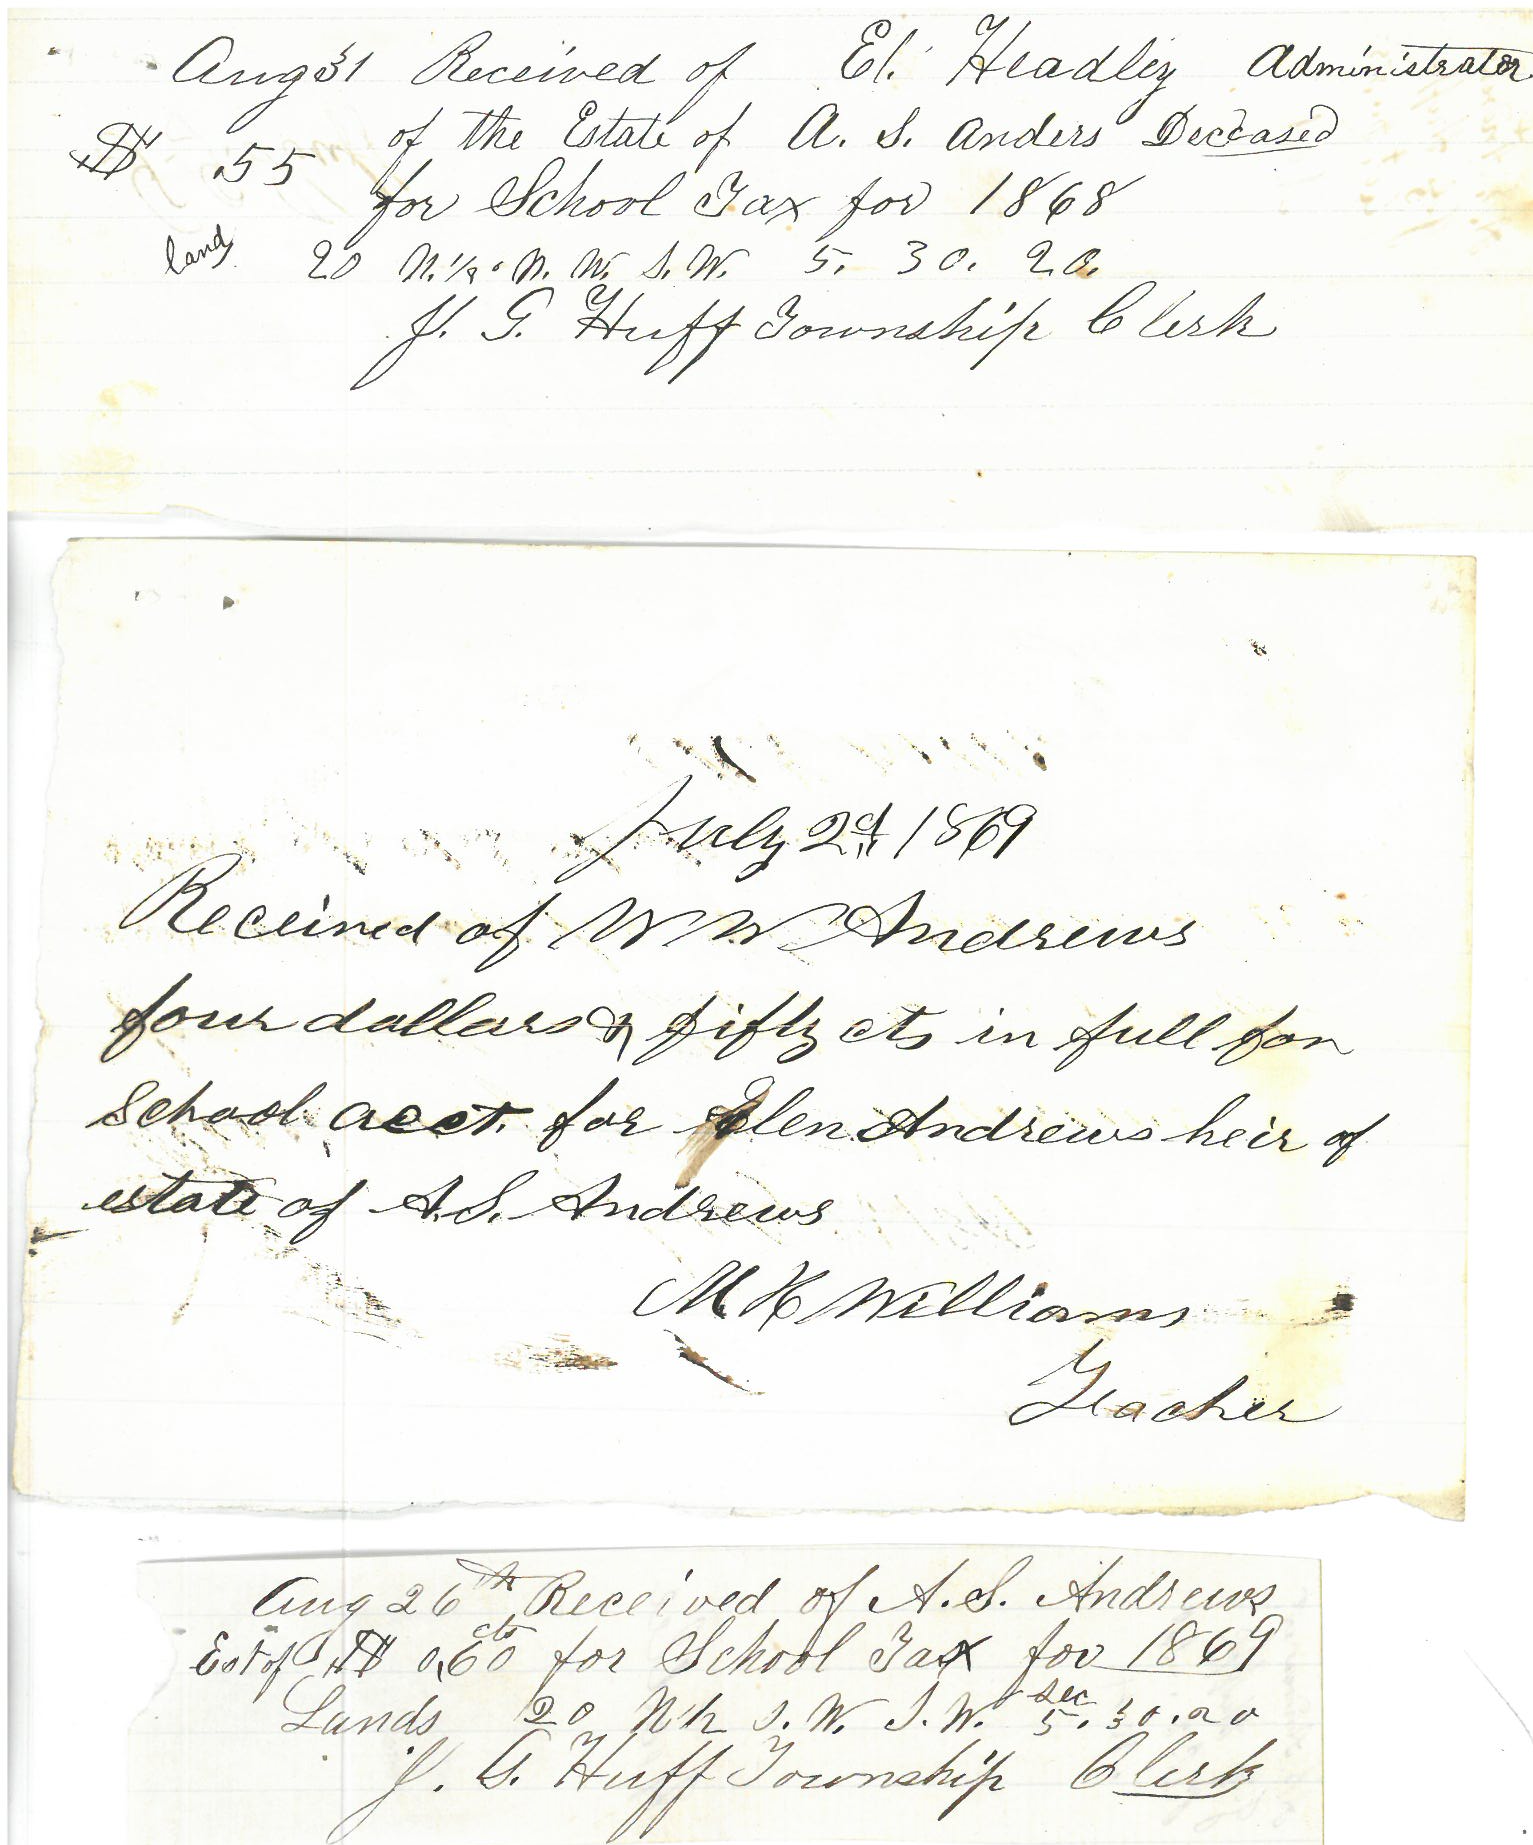 Aug 31 Received of El. Headley Administrator
of the Estate of A. S. Anders Deceased
$ .55
for School Tax for 1868
land 20 N. 1/2 N. W. S. W. 5. 30. 20.
J. G. Huff Township Clerk
July 2d, 1869
Received of W W Andrews
four dollars & fifty cts in full for
School acct. for Elen Andrews heir of
estate of A. S. Andrews
M H Williams
Teacher
Aug 26th Received of A. S. Andrews
Est of $ 0,60 cts for School Tax for 1869
Lands 20 N 1/2 S. W. S. W. Sec 5. 30. 20
J. G. Huff Township Clerk